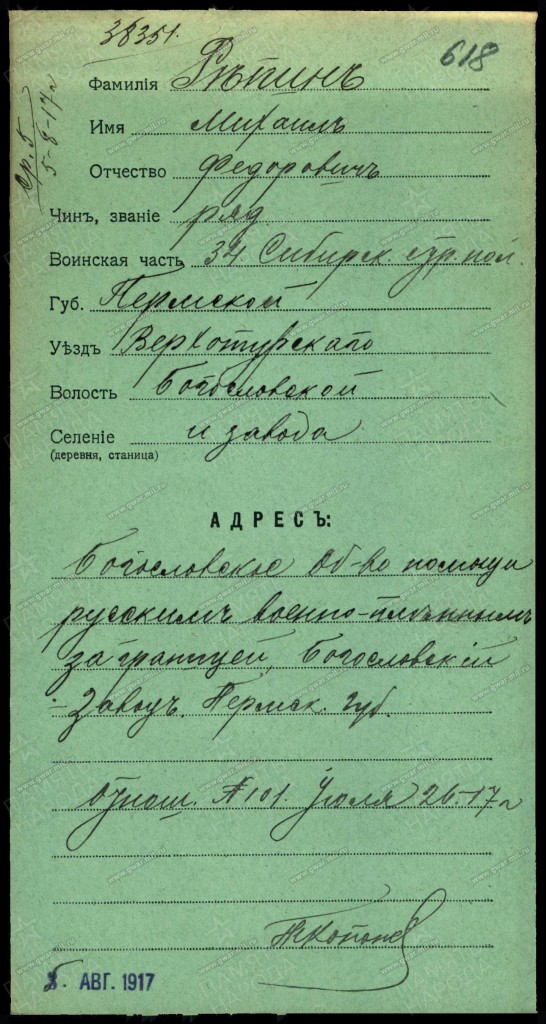 38351.
618
Ср. 5
5-8-17 г
Фамилія Рѣпинъ
Имя Михаилъ
Отчество Федоровичъ
Чинъ, званіе ряд
Воинская часть 34. Сибирск. стр. пол.
Губ. Пермской
Уѣздъ Верхотурскаго
Волость Богословской
Селеніе и завода
(деревня, станица)
АДРЕСЪ:
Богословское Об-во помощи
русскимъ военно-плѣннымъ
за границей, Богословскій
заводъ. Пермск. губ.
Отнош. № 101. Іюля 26-17 г
5. АВГ. 1917